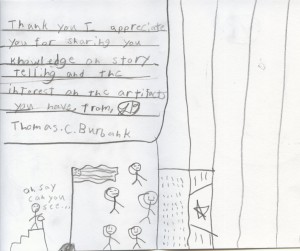 Thank you I appreciate
you for sharing you
knowledge on story
telling and the
interest on the artifacts
you have, from,
Thomas.C.Burbank
oh, say
can you
see...